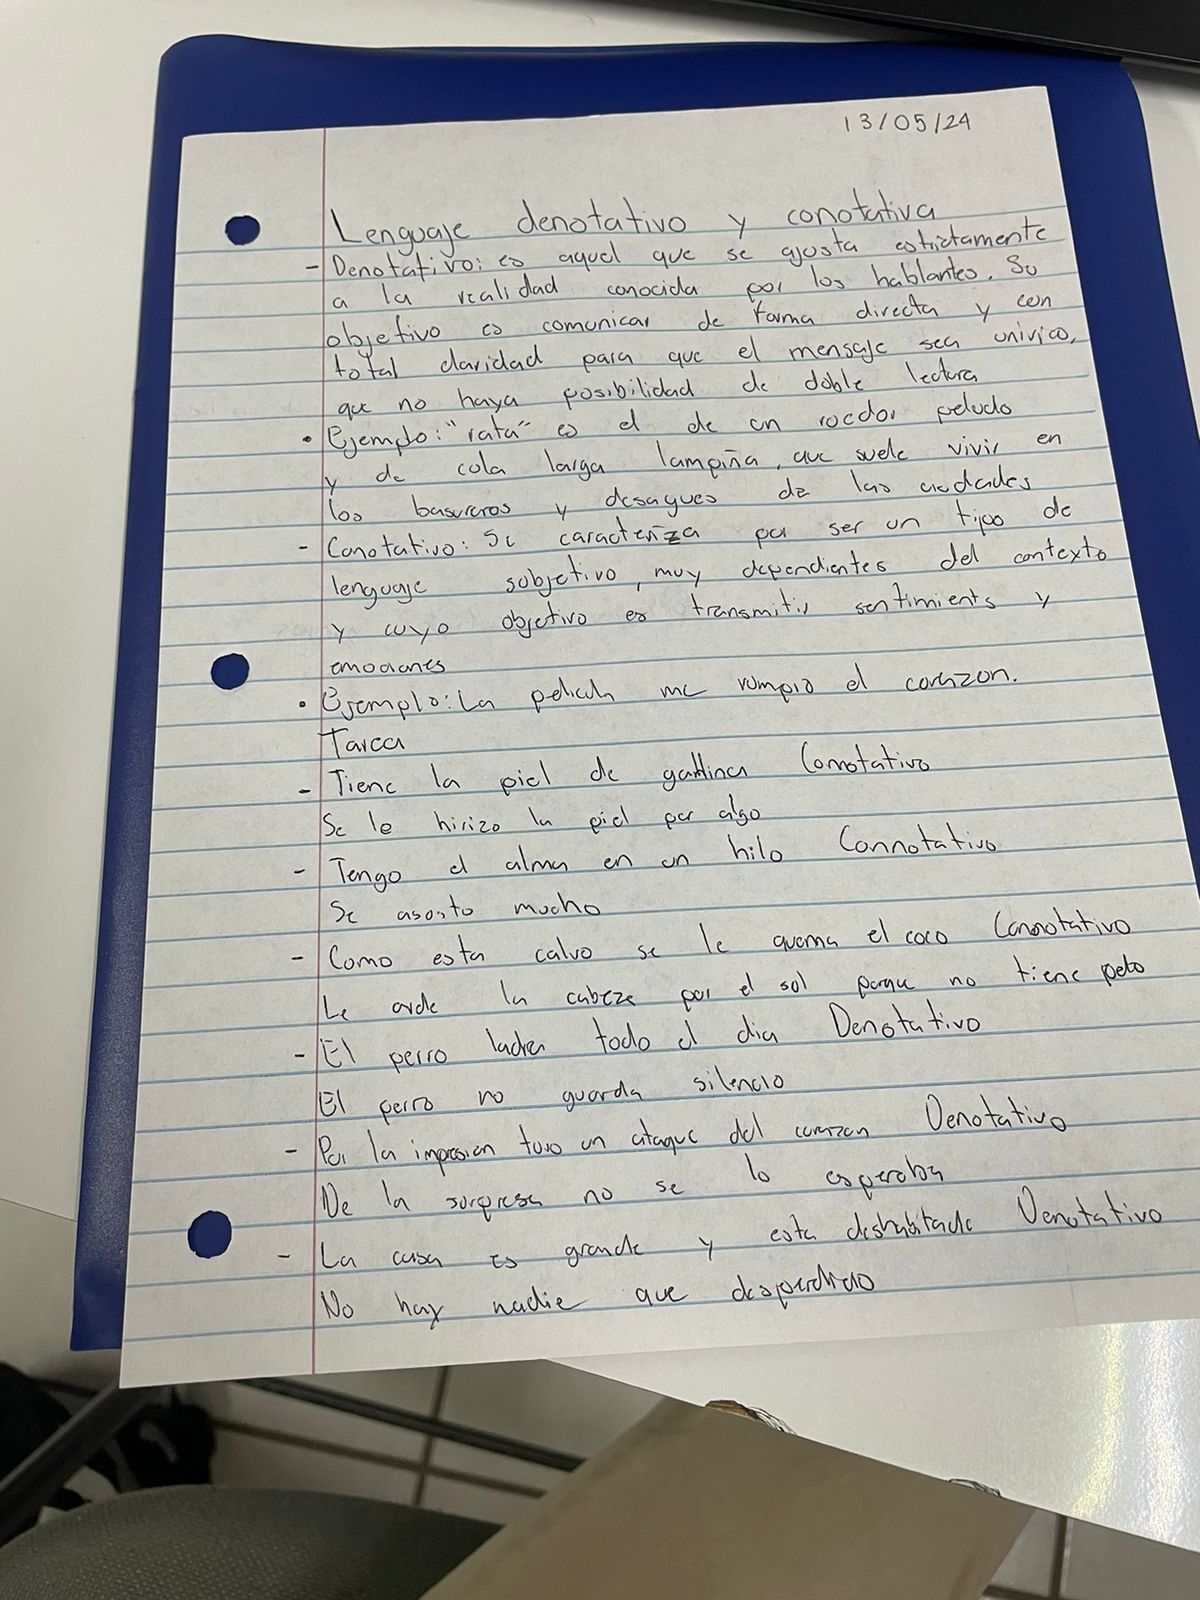 13/05/24
Lenguaje denotativo y conotativa
- Denotativo: es aquel que se ajusta estrictamente
a la realidad conocida por los hablantes. Su
objetivo es comunicar de forma directa y con
total claridad para que el mensaje sea univico,
que no haya posibilidad de doble lectura
• Ejemplo: "rata" es el de un roedor peludo
y de cola larga lampiña, que suele vivir en
los basureros y desagues de las ciudades
- Conotativo: Se caracteriza por ser un tipo de
lenguaje subjetivo, muy dependientes del contexto
y cuyo objetivo es transmitir sentimients y
emociones
• Ejemplo: La pelicula me rompio el corazon.
Tarea
- Tiene la piel de gallina Connotativo
Se le hirizo la piel por algo
- Tengo el alma en un hilo Connotativo
Se asosto mucho
- Como esta calvo se le quema el coco Connotativo
Le arde la cabeza por el sol porque no tiene pelo
- El perro ladra todo el dia Denotativo
El perro no guarda silencio
- Por la impresion tuvo un ataque del corazon Denotativo
De la sorpresa no se lo esperaba
- La casa es grande y esta deshabitada Denotativo
No hay nadie que desperdicio